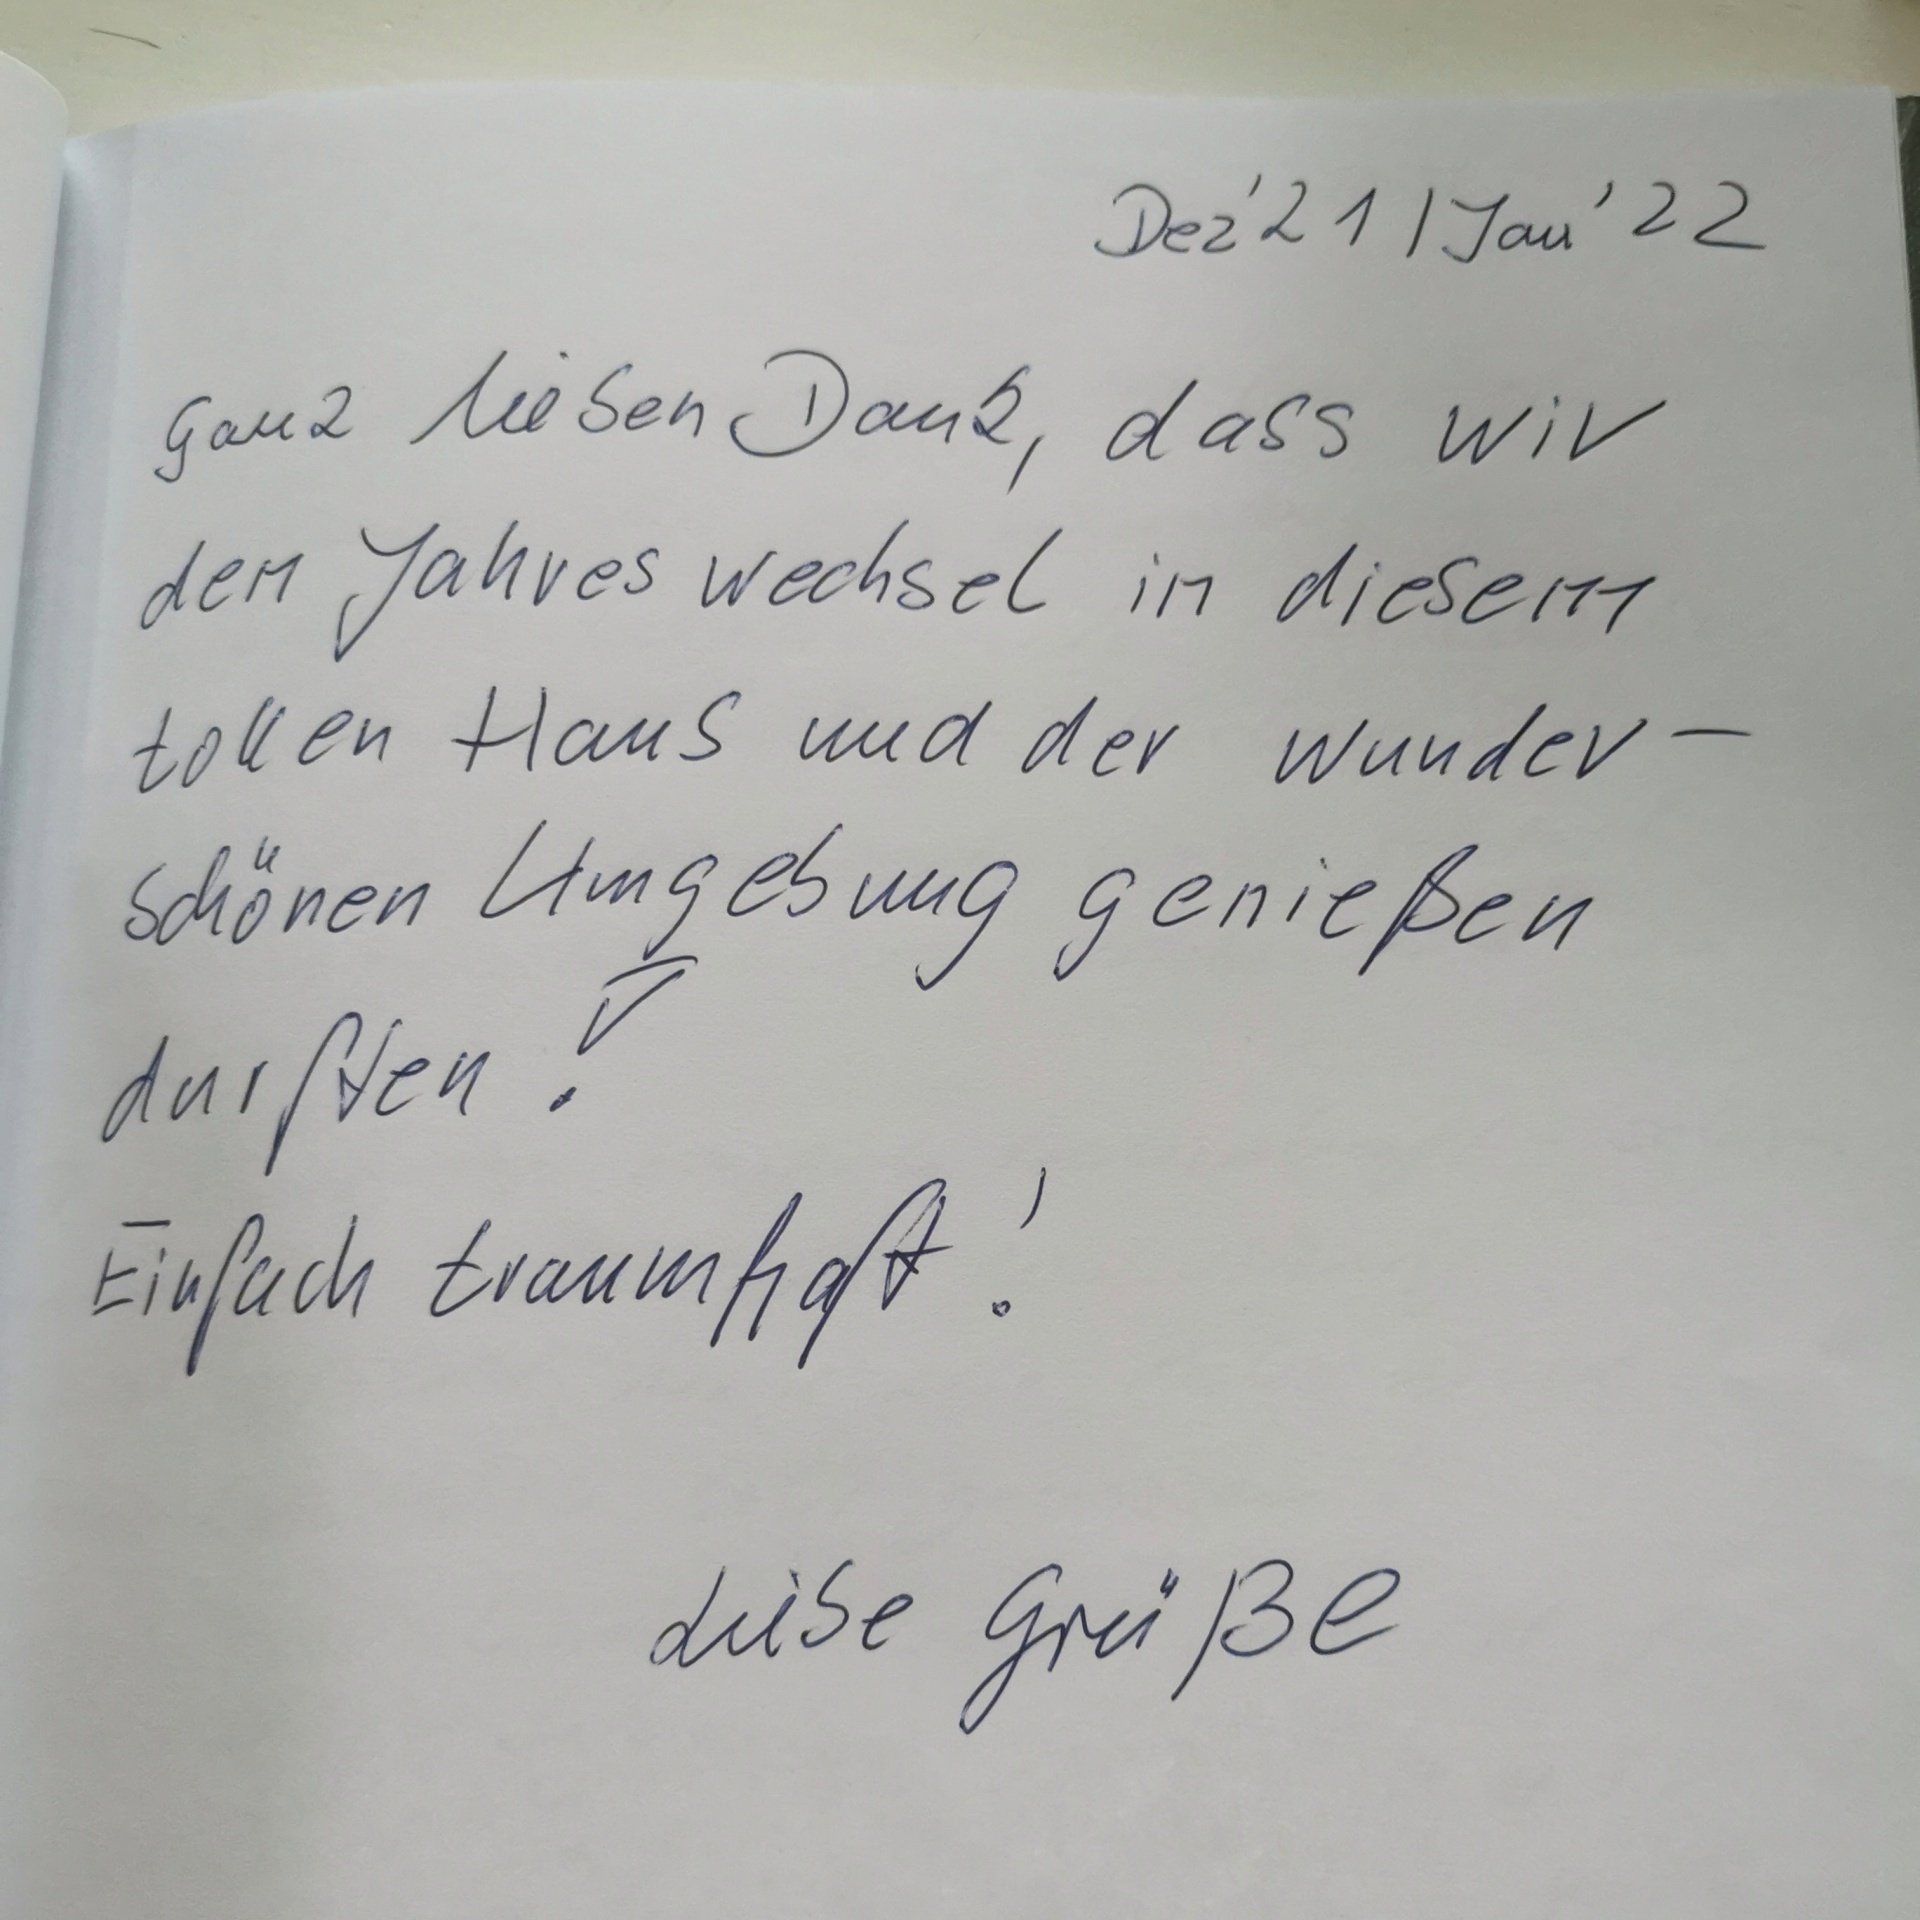 Dez'21 / Jan'22
Ganz lieben Dank, dass wir
den Jahreswechsel in diesem
tollen Haus und der wunder-
schönen Umgebung genießen
durften!
Einfach traumhaft!
Liebe Grüße